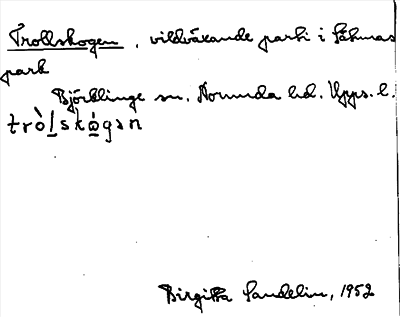 Trollskogen, vildväxande parti i Såhmas
park
Björklinge sn. Norunda hd. Upps. l.
tròlskògən
Birgitta Sandelin, 1952